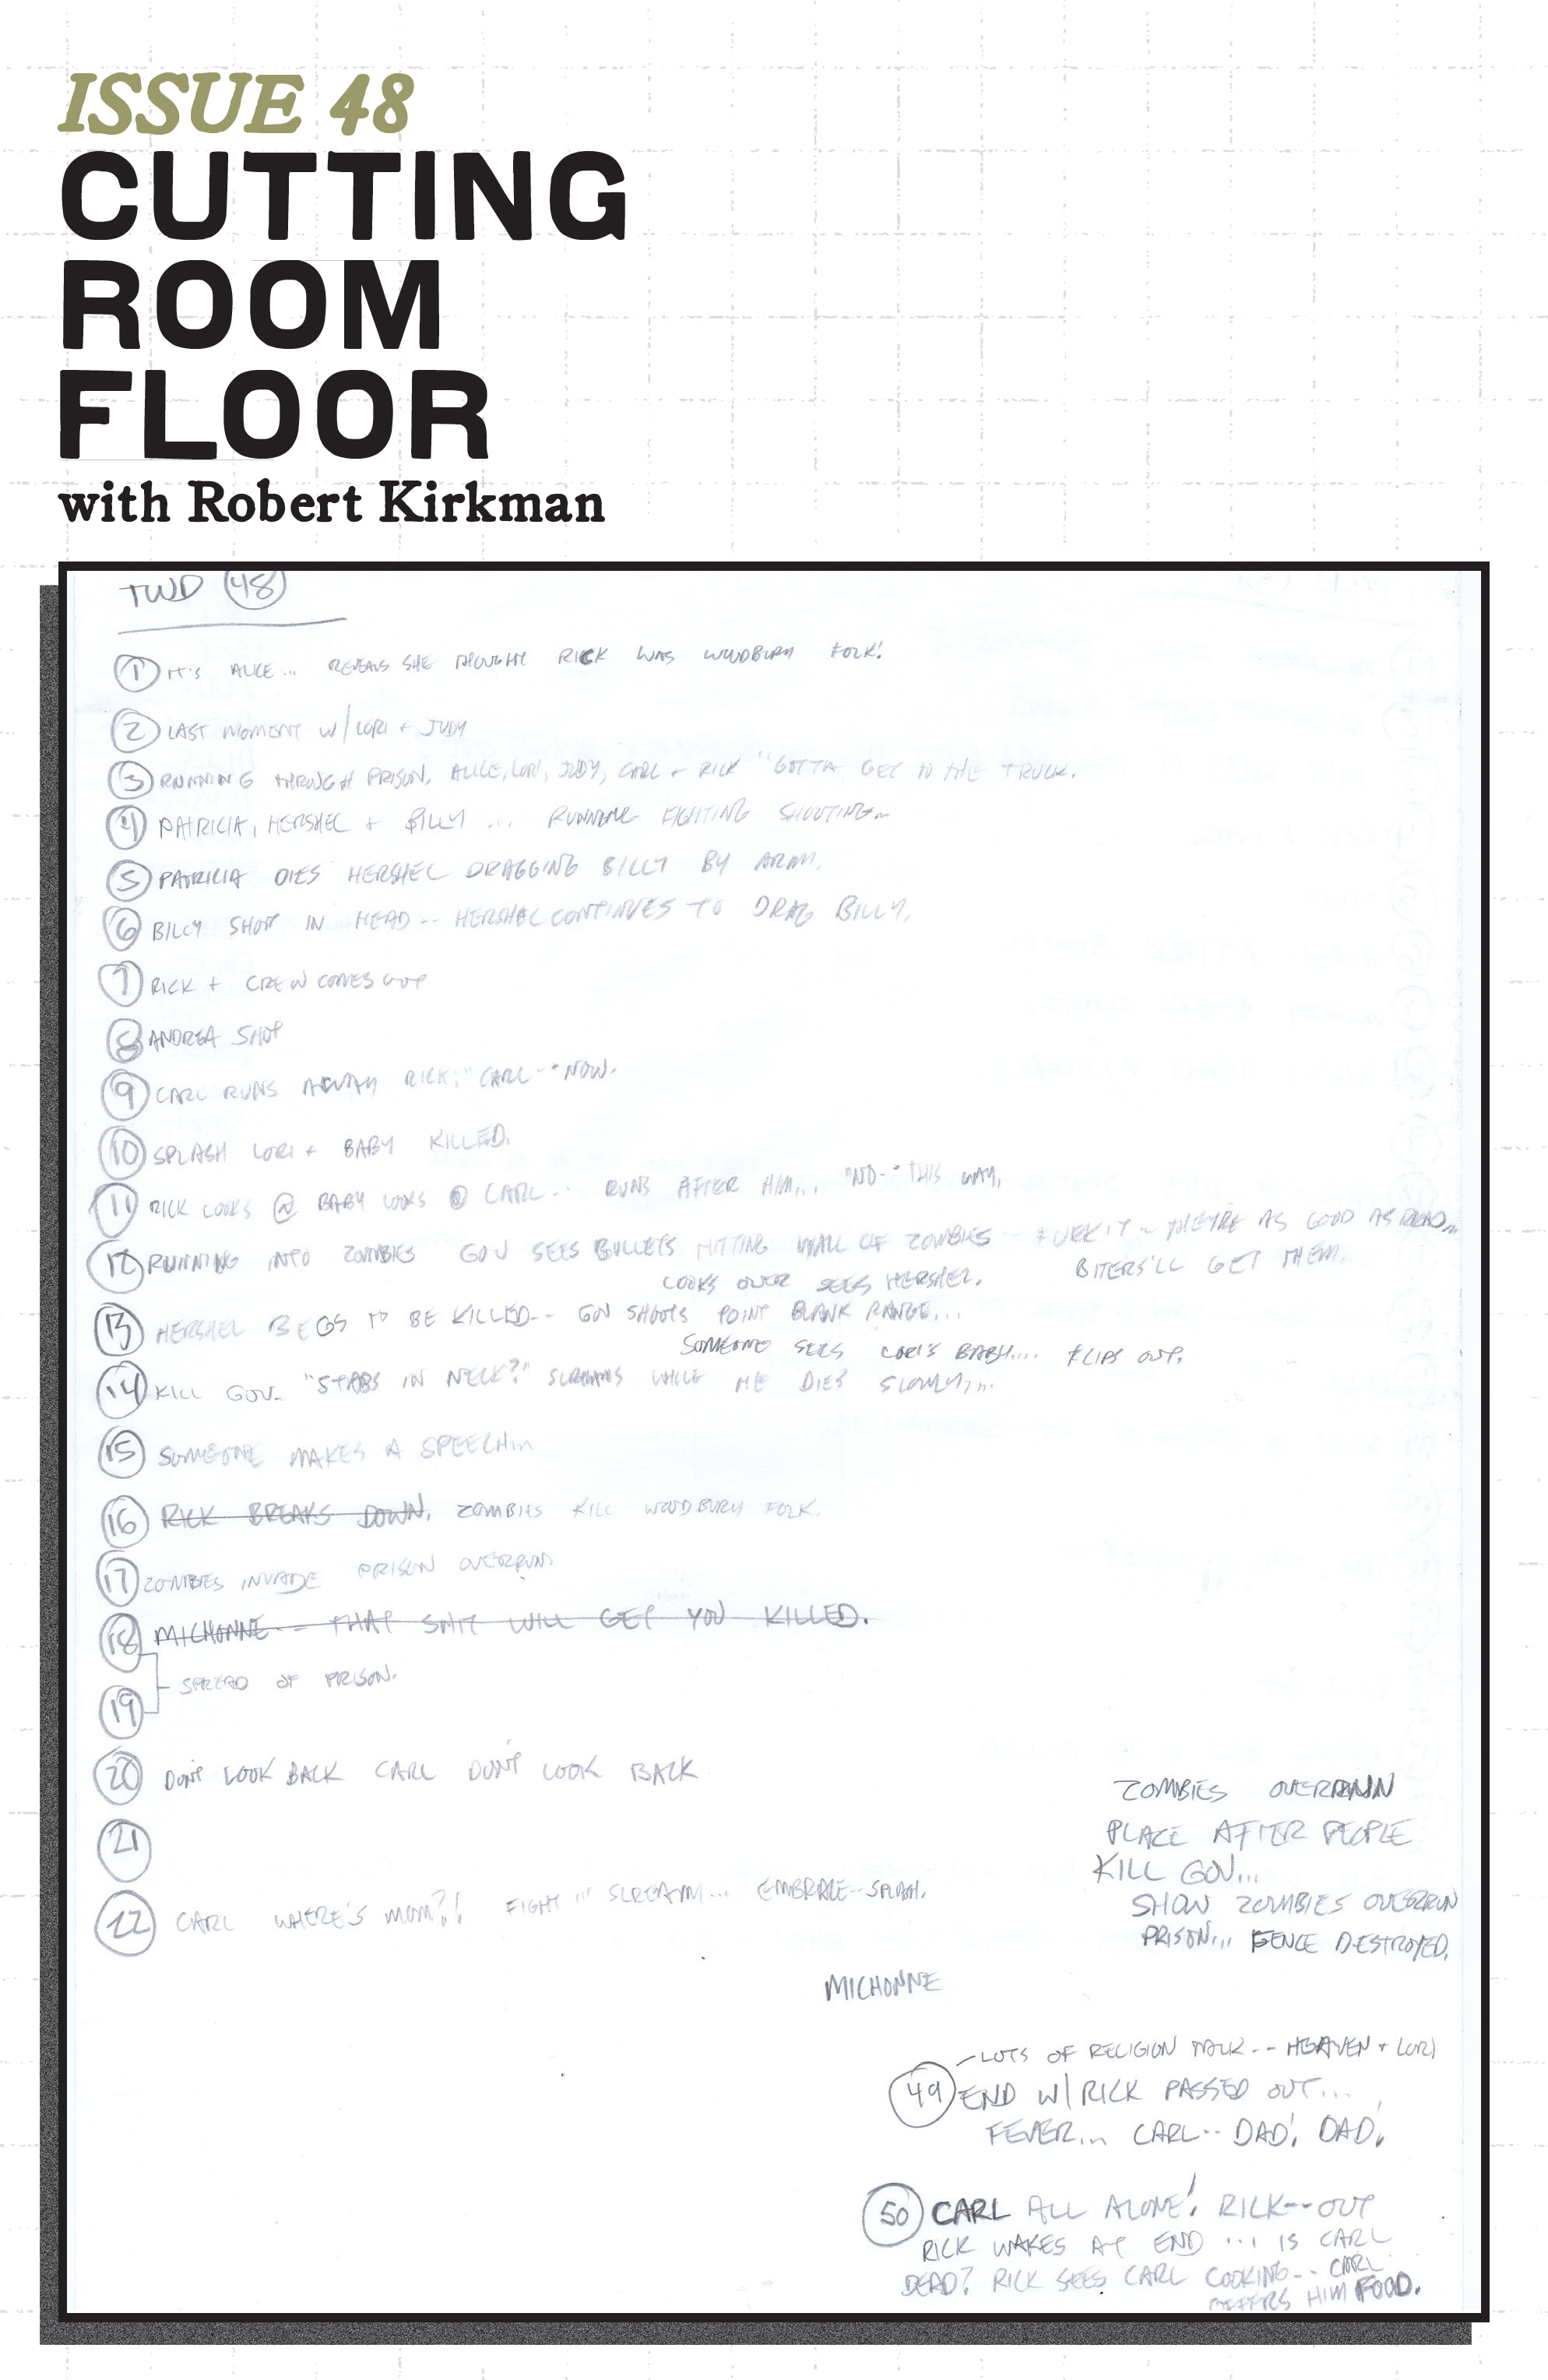 ISSUE 48
CUTTING
ROOM
FLOOR
with Robert Kirkman
TWD 48
1 IT'S ALICE... REVEALS SHE THOUGHT RICK WAS WOODBURY FOLK!
2 LAST MOMENT W/ LORI + JUDY
3 RUNNING THROUGH PRISON, ALICE, LORI, JUDY, CARL + RICK "GOTTA GET TO THE TRUCK.
4 PATRICIA, HERSHEL + BILLY ... RUNNING FIGHTING SHOOTING...
5 PATRICIA DIES HERSHEL DRAGGING BILLY BY ARM.
6 BILLY SHOT IN HEAD -- HERSHEL CONTINUES TO DRAG BILLY.
7 RICK + CREW COMES OUT
8 ANDREA SHOT
9 CARL RUNS AWAY RICK: "CARL -- NOW.
10 SPLASH LORI + BABY KILLED.
11 RICK LOOKS @ BABY LOOKS @ CARL... RUNS AFTER HIM... "NO -- THIS WAY.
12 RUNNING INTO ZOMBIES GOV SEES BULLETS HITTING WALL OF ZOMBIES -- FUCK IT -- THEY'RE AS GOOD AS DEAD...
BITERS'LL GET THEM.
LOOKS OVER SEES HERSHEL.
13 HERSHEL BEGS TO BE KILLED -- GOV SHOOTS POINT BLANK RANGE...
SOMEONE SEES LORI'S BABY.... FLIPS OUT.
14 KILL GOV. "STABS IN NECK?" SCREAMS WHILE HE DIES SLOWLY...
15 SOMEONE MAKES A SPEECH...
16 RICK BREAKS DOWN. ZOMBIES KILL WOODBURY FOLK.
17 ZOMBIES INVADE PRISON OVERRUN
18 MICHONNE -- THAT SHIT WILL GET YOU KILLED.
SPREAD OF PRISON.
19
20 DON'T LOOK BACK CARL DON'T LOOK BACK
21
22 CARL WHERE'S MOM?! FIGHT ... SCREAM... EMBRACE -- SPLASH.
ZOMBIES OVERRUN
PLACE AFTER PEOPLE
KILL GOV...
SHOW ZOMBIES OVERRUN
PRISON... FENCE DESTROYED.
MICHONNE
LOTS OF RELIGION TALK -- HEAVEN + LORI
49 END W/ RICK PASSED OUT...
FEVER... CARL -- DAD! DAD!
50 CARL ALL ALONE! RICK -- OUT
RICK WAKES AT END ... IS CARL
DEAD? RICK SEES CARL COOKING -- CARL
OFFERS HIM FOOD.